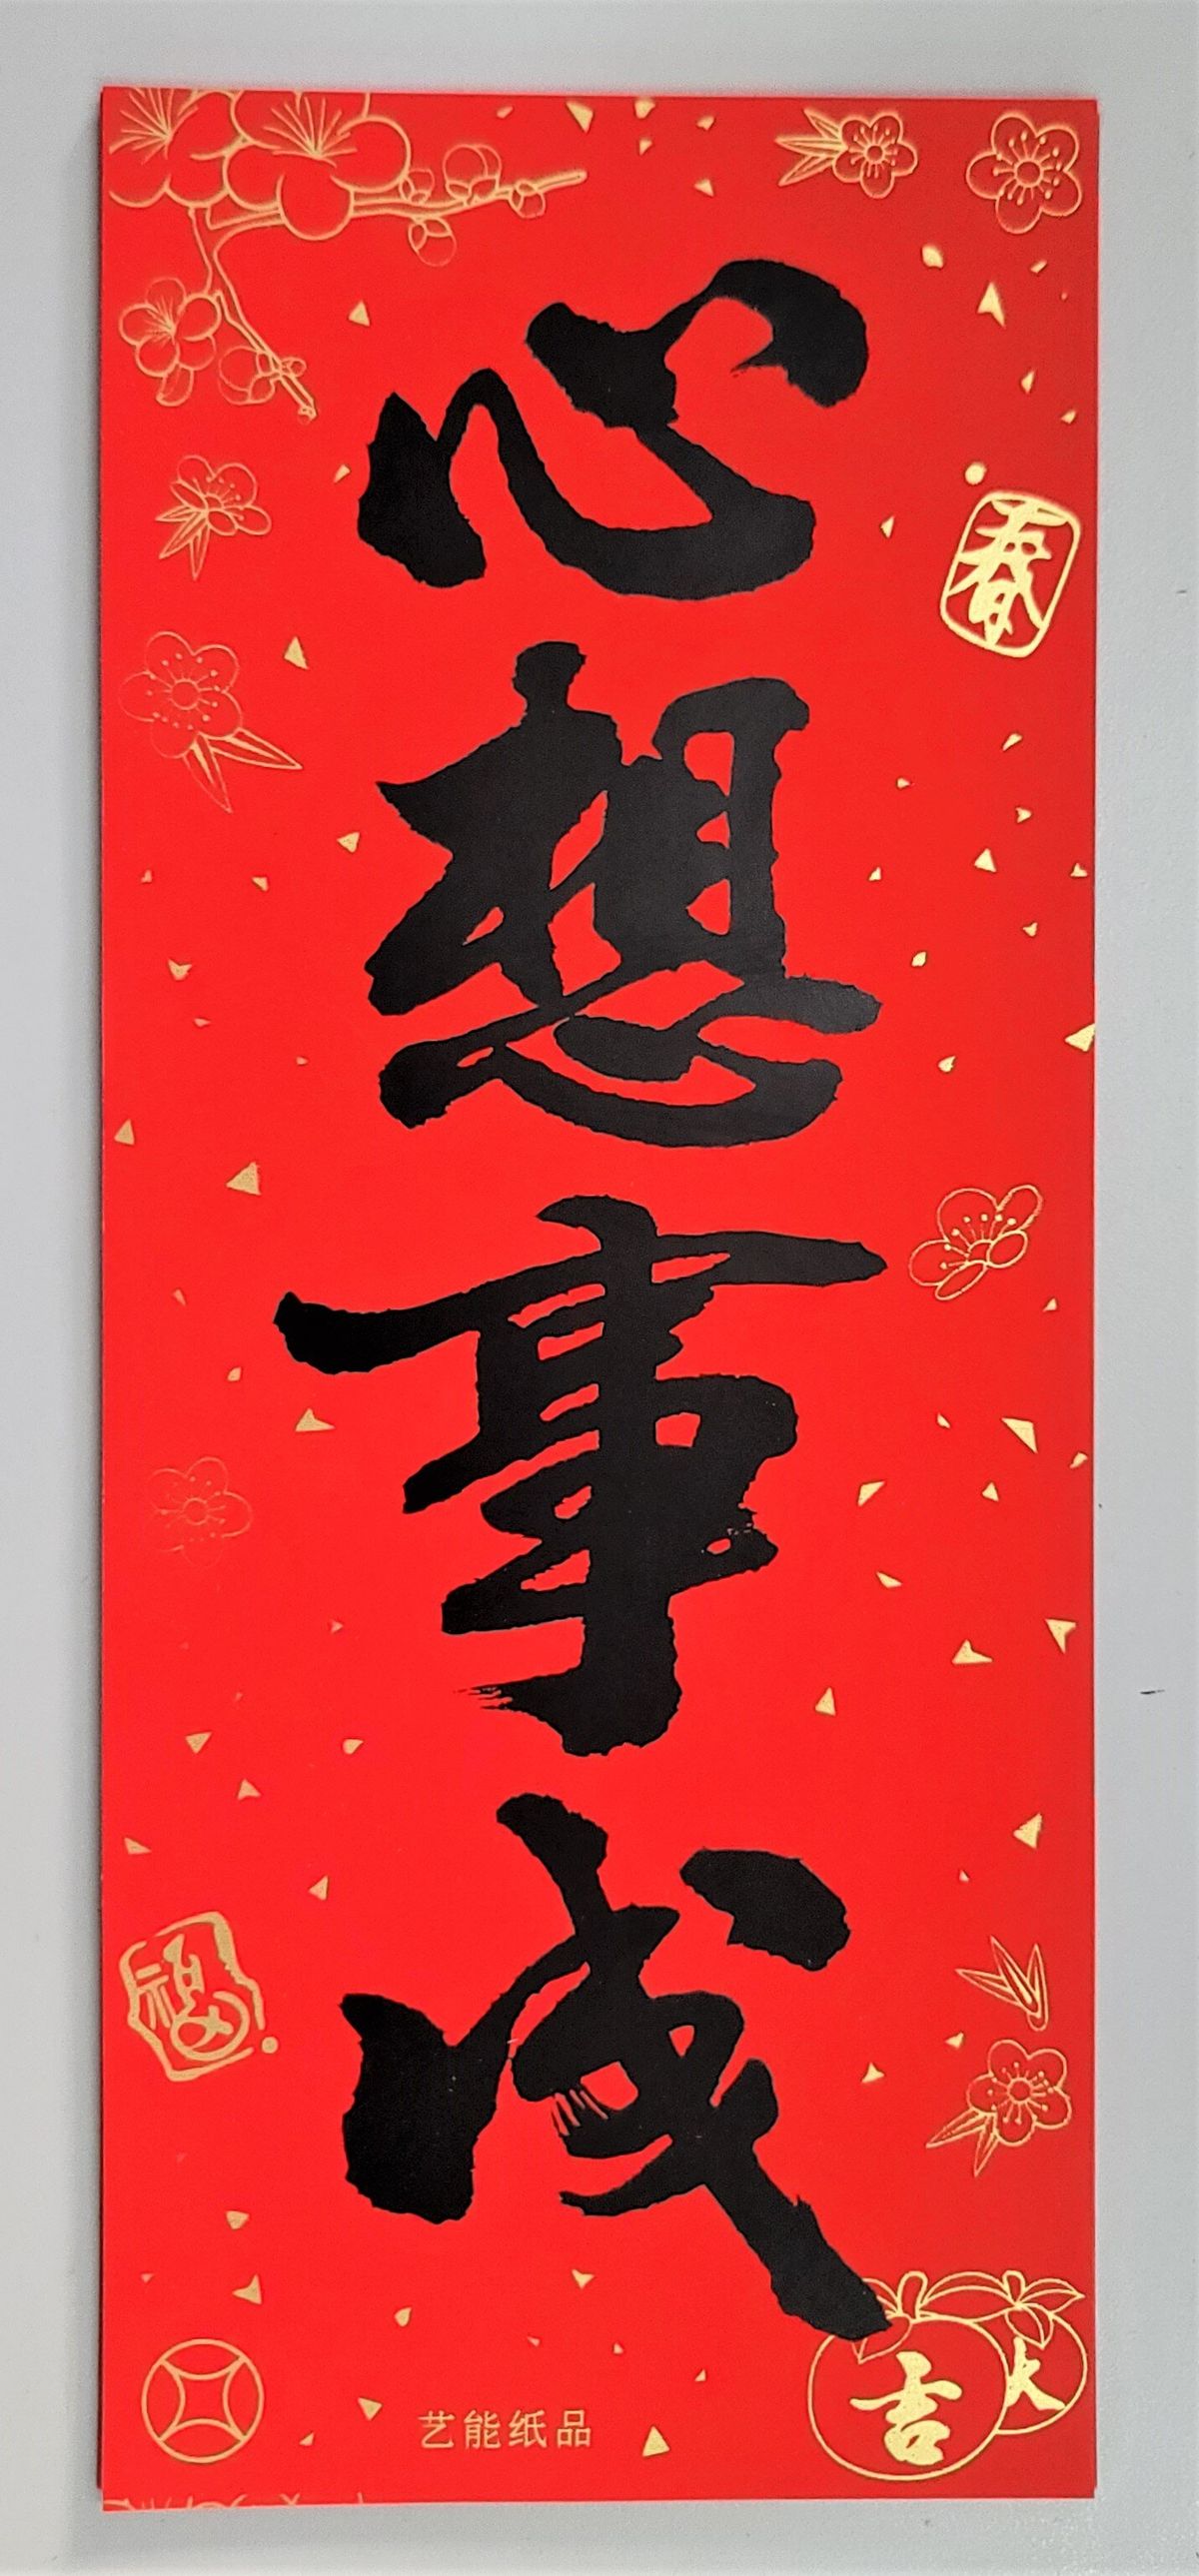 心想事成
春
福
大吉
艺能纸品